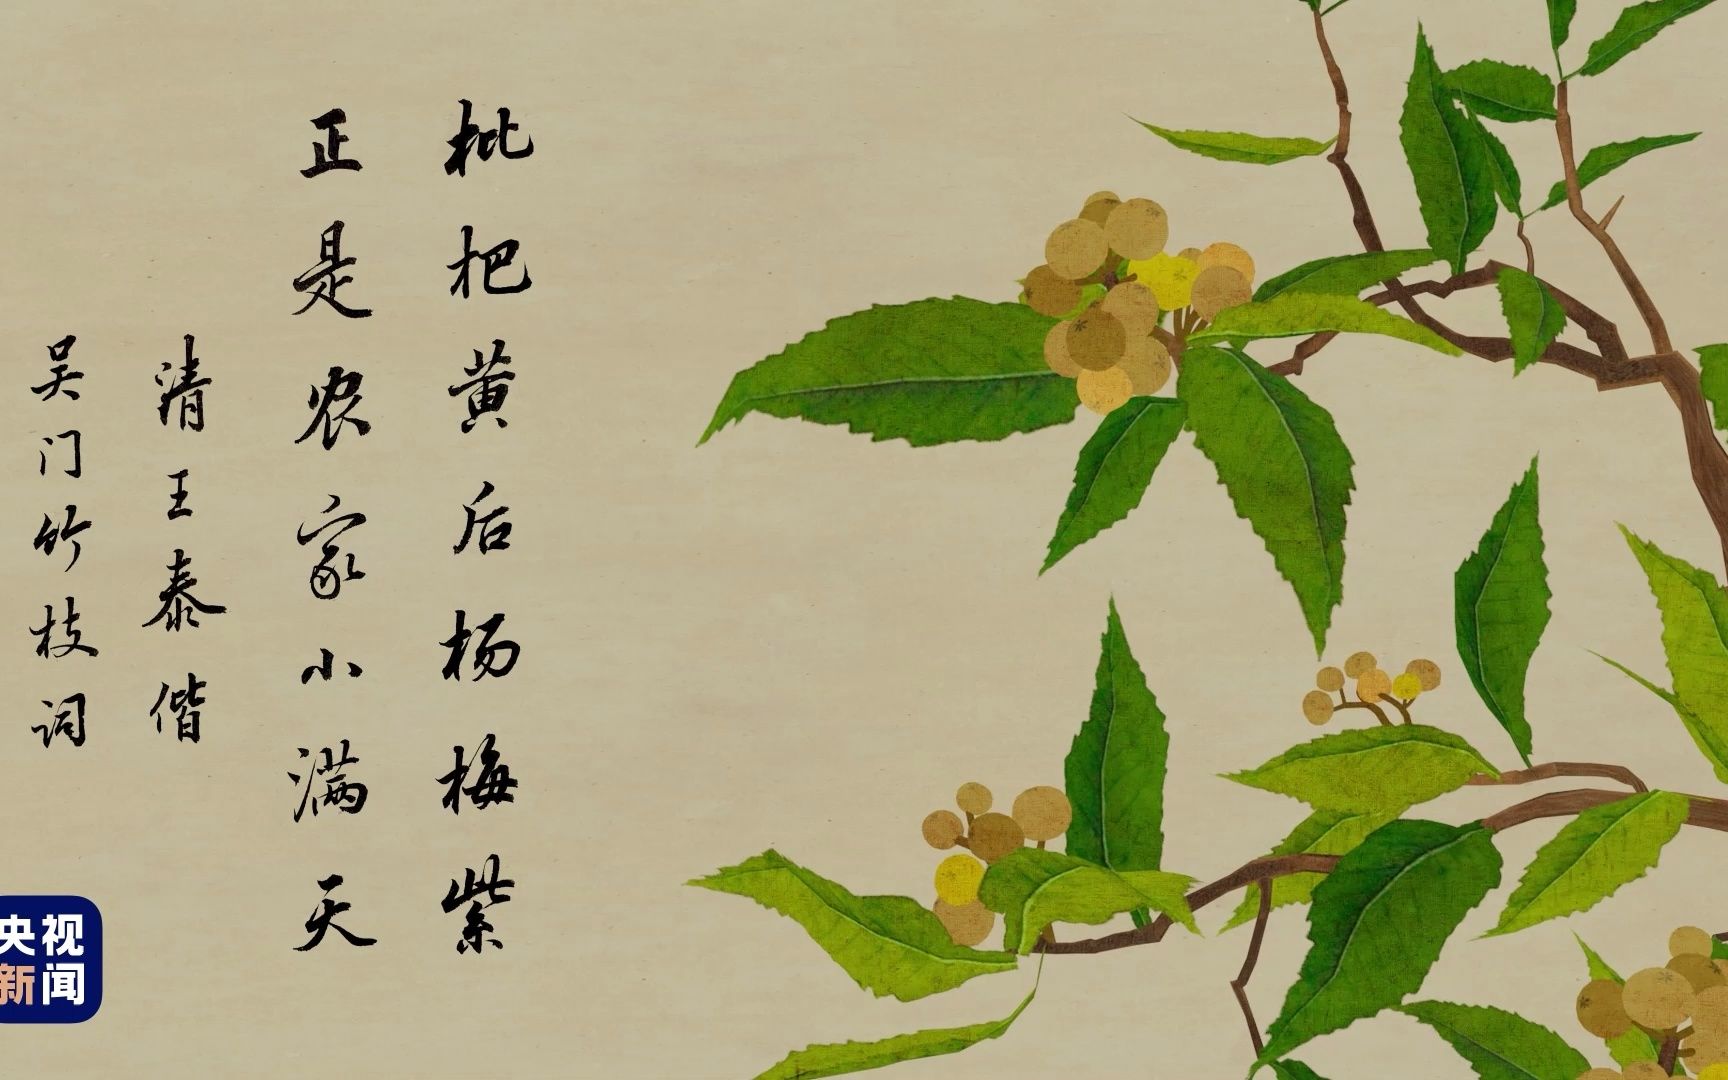 枇杷黄后杨梅紫
正是农家小满天
清王泰偕
吴门竹枝词
央视
新闻